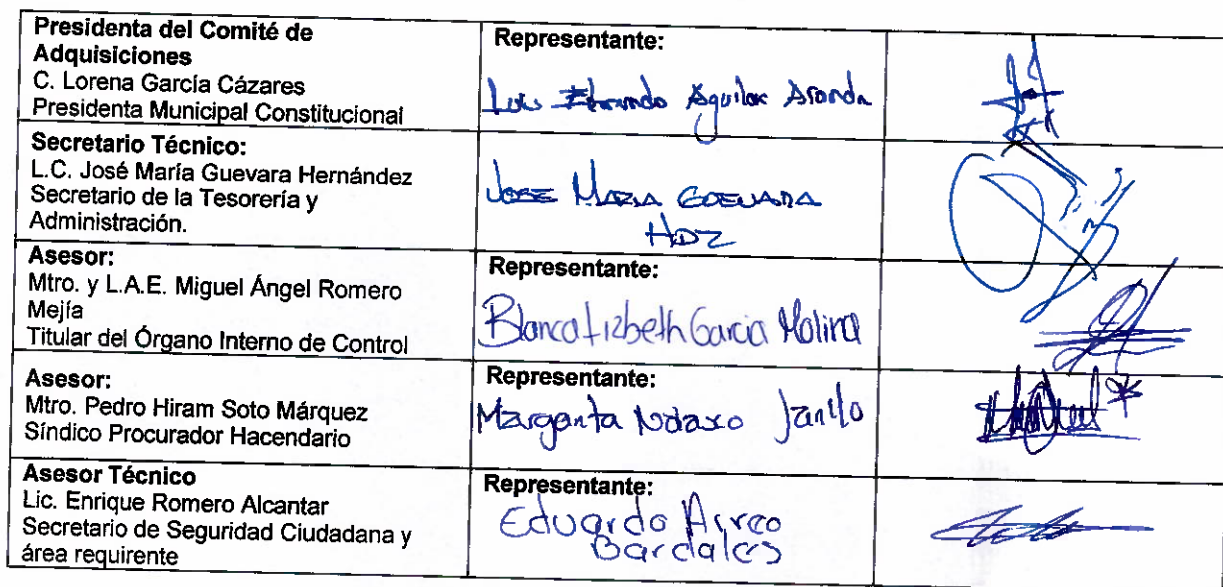 Presidenta del Comité de
Adquisiciones
C. Lorena García Cázares
Presidenta Municipal Constitucional
Representante:
Luis Aguilar Aranda
Secretario Técnico:
L.C. José María Guevara Hernández
Secretario de la Tesorería y
Administración.
JOSE MARIA GUEVARA
HDZ
Asesor:
Mtro. y L.A.E. Miguel Ángel Romero
Mejía
Titular del Órgano Interno de Control
Representante:
Blanca Lizbeth Garcia Molina
Asesor:
Mtro. Pedro Hiram Soto Márquez
Síndico Procurador Hacendario
Representante:
Margarita
Asesor Técnico
Lic. Enrique Romero Alcantar
Secretario de Seguridad Ciudadana y
área requirente
Representante:
Eduardo
Bardales